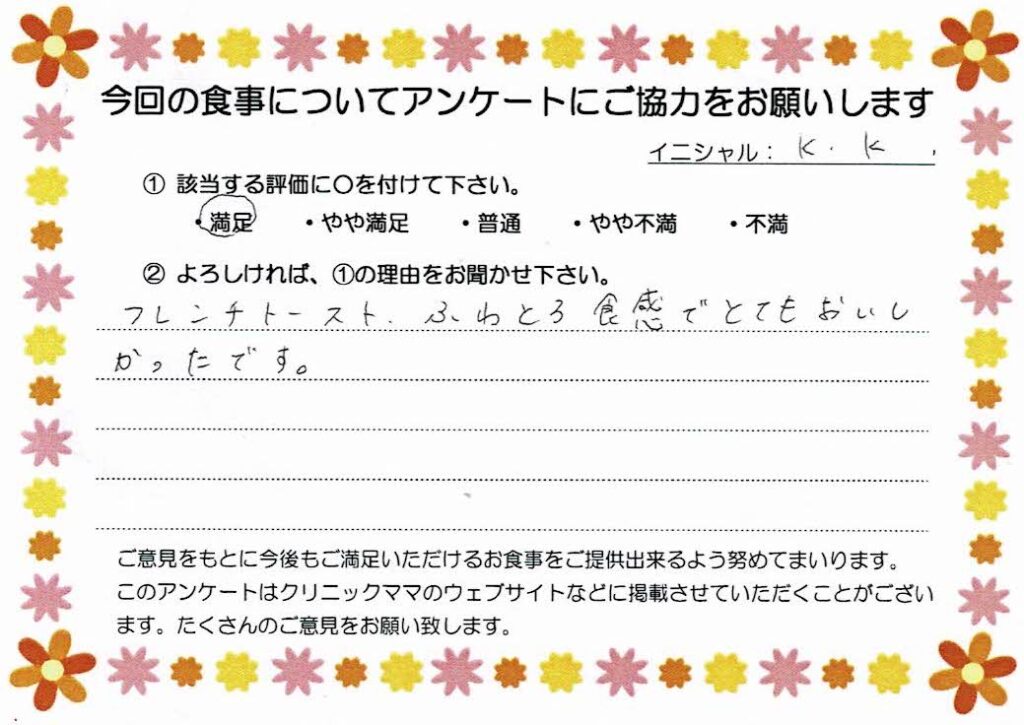 今回の食事についてアンケートにご協力をお願いします
イニシャル： K. K.
① 該当する評価に〇を付けて下さい。
・満足 ・やや満足 ・普通 ・やや不満 ・不満
② よろしければ、①の理由をお聞かせ下さい。
フレンチトースト、ふわとろ食感でとてもおいし
かったです。
ご意見をもとに今後もご満足いただけるお食事をご提供出来るよう努めてまいります。
このアンケートはクリニックママのウェブサイトなどに掲載させていただくことがござい
ます。たくさんのご意見をお願い致します。